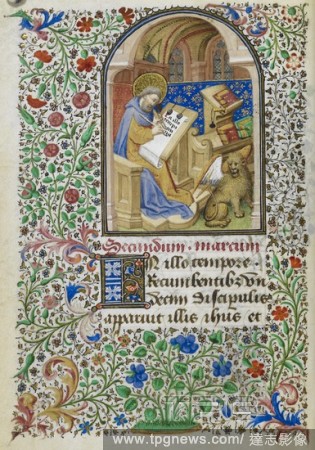 Secundum. marcum
IN illo tempore
recumbentibz vn
decim discipulis
apparuit illis ihus et
www.tpgnews.com/ 達志影像